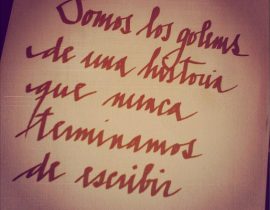 Somos los golems
de una historia
que nunca
terminamos
de escribir